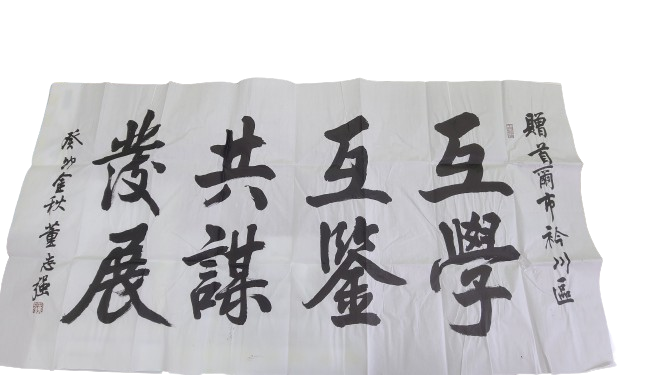 贈首爾市衿川區
互學
互鑒
共謀
發展
癸卯金秋 董志强